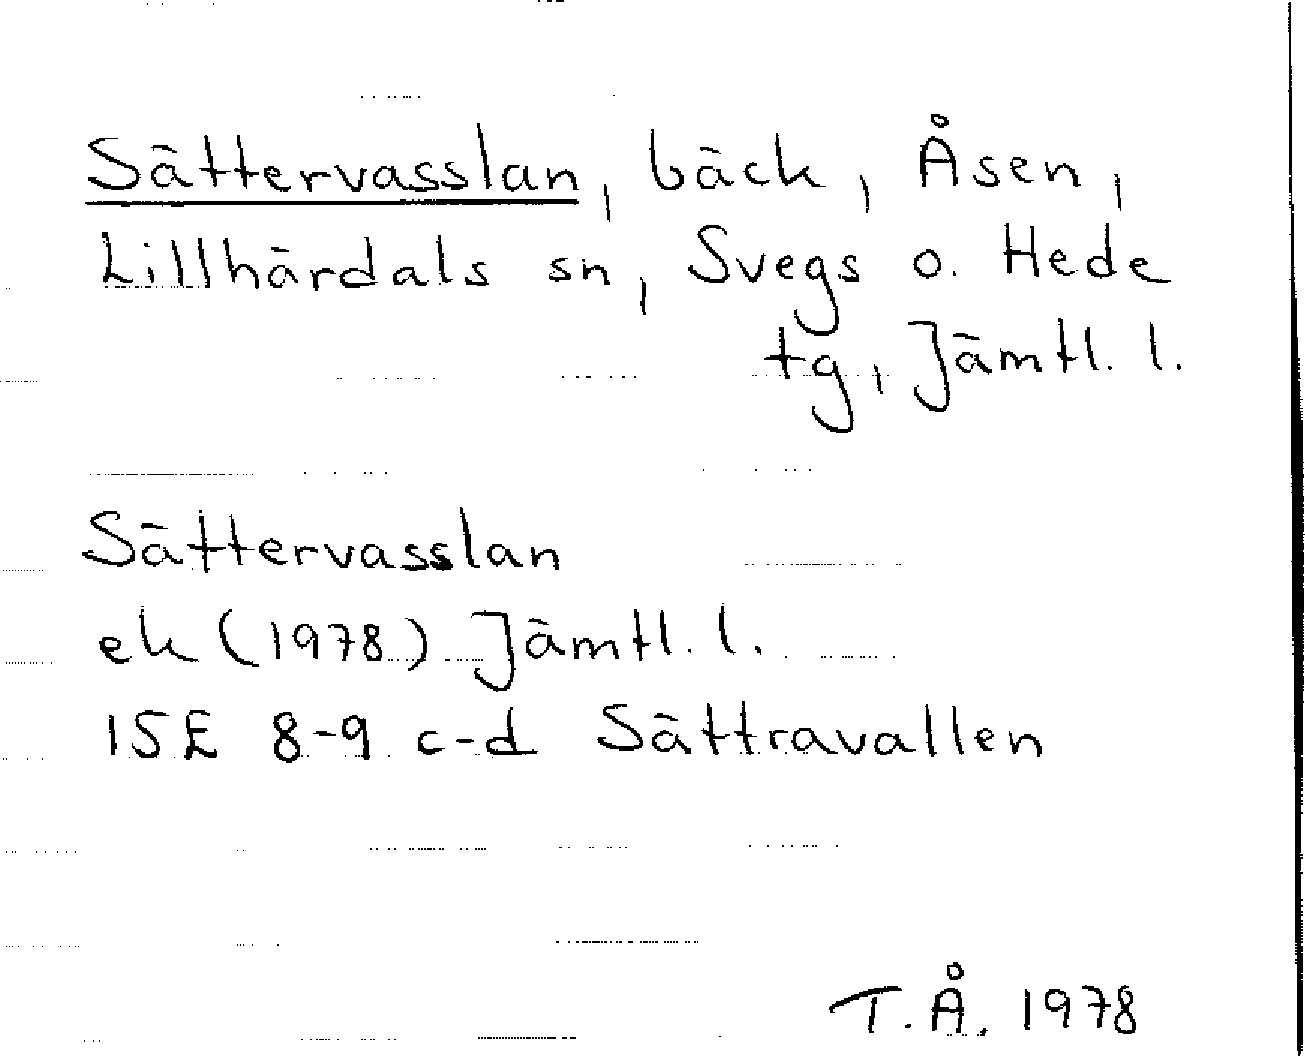 Sättervasslan, bäck, Åsen,
Lillhärdals sn, Svegs o. Hede
tg, Jämtl. l.
Sättervasslan
ek (1978) Jämtl. l.
15E 8-9 c-d Sättravallen
T.Å. 1978